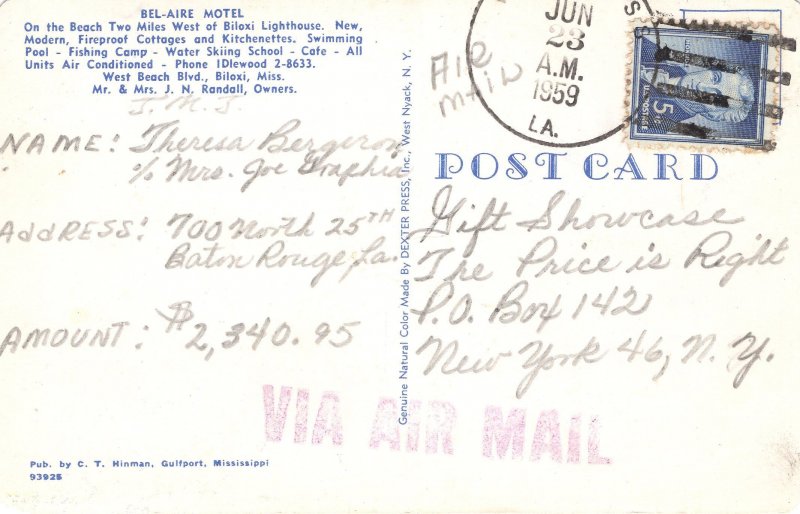 BEL-AIRE MOTEL
On the Beach Two Miles West of Biloxi Lighthouse. New,
Modern, Fireproof Cottages and Kitchenettes. Swimming
Pool - Fishing Camp - Water Skiing School - Cafe - All
Units Air Conditioned - Phone IDlewood 2-8633.
West Beach Blvd., Biloxi, Miss.
Mr. & Mrs. J. N. Randall, Owners.
J. M. J.
NAME: Theresa Bergeron
% Mrs. Joe
ADDRESS: 700 North 25TH
Baton Rouge, La.
AMOUNT: $2,340.95
VIA AIR MAIL
Pub. by C. T. Hinman, Gulfport, Mississippi
93925
Genuine Natural Color Made By DEXTER PRESS, Inc., West Nyack, N. Y.
AIR
MAIL
JUN
23
A.M.
1959
LA.
5¢
POST CARD
Gift Showcase
The Price is Right
P.O. Box 142
New York 46, N. Y.